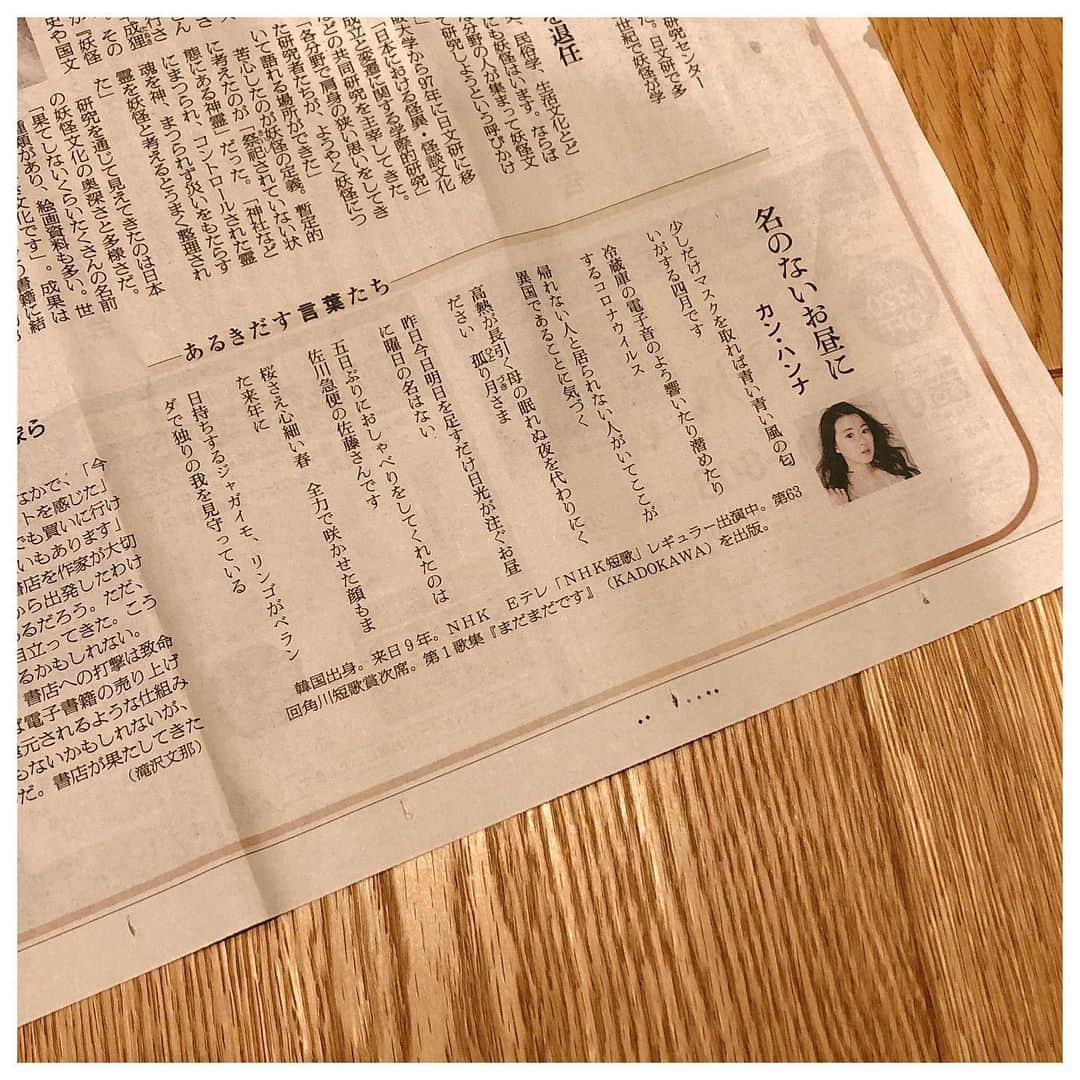 研究センター
た。日文研で多
世紀で妖怪が学
を退任
、民俗学、生活文化とど
にも妖怪はいます。ならば
な分野の人が集まって妖怪文
て研究しようという呼びかけ
大学から97年に日文研に移
「日本における怪異・怪談文化
成立と変遷に関する学際的研究」
などの共同研究を主宰してきた。
「各分野で肩身の狭い思いをしてき
た研究者たちが、ようやく妖怪につ
いて語れる場所ができた」
苦心したのが妖怪の定義。暫定的
に考えたのが「祭祀されていない状
態にある神霊」だった。「神社など
にまつられ、コントロールされた霊
魂を神、まつられず災いをもたらす
霊を妖怪と考えるとうまく整理され
た」
研究を通じて見えてきたのは日本
の妖怪文化の奥深さと多様さだ。
「果てしないくらいたくさんの名前
があり、絵画資料も多い。世
文化です」。成果は
書籍に結
あるきだす言葉たち
名のないお昼に
カン・ハンナ
少しだけマスクを取れば青い青い風の匂
いがする四月です
冷蔵庫の電子音のよう響いたり潜めたり
するコロナウィルス
帰れない人と居られない人がいてここが
異国であることに気づく
高熱が長引く母の眠れぬ夜を代わりにく
ださい　孤り月さま
昨日今日明日を足すだけ日光が注ぐお昼
に曜日の名はない
五日ぶりにおしゃべりをしてくれたのは
佐川急便の佐藤さんです
桜さえ心細い春　全力で咲かせた顔もま
た来年に
日持ちするジャガイモ、リンゴがベラン
ダで独りの我を見守っている
韓国出身。来日9年。NHK　Eテレ「NHK短歌」レギュラー出演中。第63
回角川短歌賞次席。第1歌集『まだまだです』（KADOKAWA）を出版。
なかで、「今
トを感じた」
でも買いに行け
いもあります」
書店を作家が大切
から出発したわけ
るだろう。ただ、
目立ってきた。こう
るかもしれない。
書店への打撃は致命
電子書籍の売り上げ
元されるような仕組み
もないかもしれないが、
だ。書店が果たしてきた
（滝沢文那）